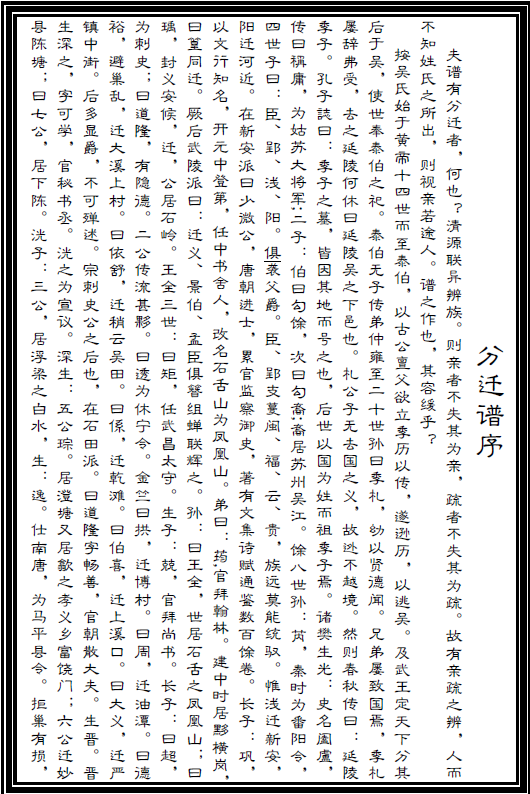 分迁谱序
夫谱有分迁者，何也？清源联异辨族。则亲者不失其为亲，疏者不失其为疏。故有亲疏之辨，人而
不知姓氏之所出，则视亲若途人。谱之作也，其容缓乎？
按吴氏始于黄帝十四世而至泰伯，以古公亶父欲立季历以传，遂逊历，以逃吴。及武王定天下分其
后于吴，使世奉泰伯之祀。泰伯无子传弟仲雍至二十世孙曰季札，幼以贤德闻。兄弟屡致国焉，季札
屡辞弗受，去之延陵何休曰延陵吴之下邑也。札公子无去国之义，故迯不越境。然则春秋传曰：延陵
季子。孔子誌曰：季子之墓，皆因其地而号之也，后世以国为姓而祖季子焉。诸樊生光：史名阖廬，
传曰稱庸，为姑苏大将军二子：伯曰勾餘，次曰勾裔裔居苏州吴江。馀八世孙：芮，秦时为番阳令，
四世子曰：臣、郢、浅、阳。俱袭父爵。臣、郢支蔓闽、福、云、贵，族远莫能统驭。惟浅迁新安，
阳迁河近。在新安派曰少微公，唐朝进士，累官监察御史，著有文集诗赋通鉴数百馀卷。长子：巩，
以文行知名，开元中登第，任中书舍人，改名石舌山为凤凰山。弟曰：筠官拜翰林。建中时居黟横岗，
曰篁同迁。厥后武陵派曰：迁义、景伯、孟臣俱簪组蝉联辉之。孙：曰王全，世居石舌之凤凰山；曰
瑀，封义安候，迁，公居石岭。王全三世：曰矩，任武昌太守。生子：兢，官拜尚书。长子：曰超，
为刺史；曰道隆，有隐德。二公传流甚夥。曰透为休宁令。金竺曰拱，迁博村。曰周，迁油潭。曰德
裕，避巢乱，迁大溪上村。曰依舒，迁稍云吴田。曰係，迁乾滩。曰伯喜，迁上溪口。曰大义，迁严
镇中街。后多显爵，不可殚述。宗刺史公之后也，在石田派。曰道隆字畅善，官朝散大夫。生晋。晋
生深之，字可学，官秘书丞。洸之为宣议。深生：五公琮。居澄塘又居歙之孝义乡富饶门；六公迁妙
县陈塘；曰七公，居下陈。洸子：三公，居浮梁之白水，生：逸。仕南唐，为马平县令。拒巢有损，